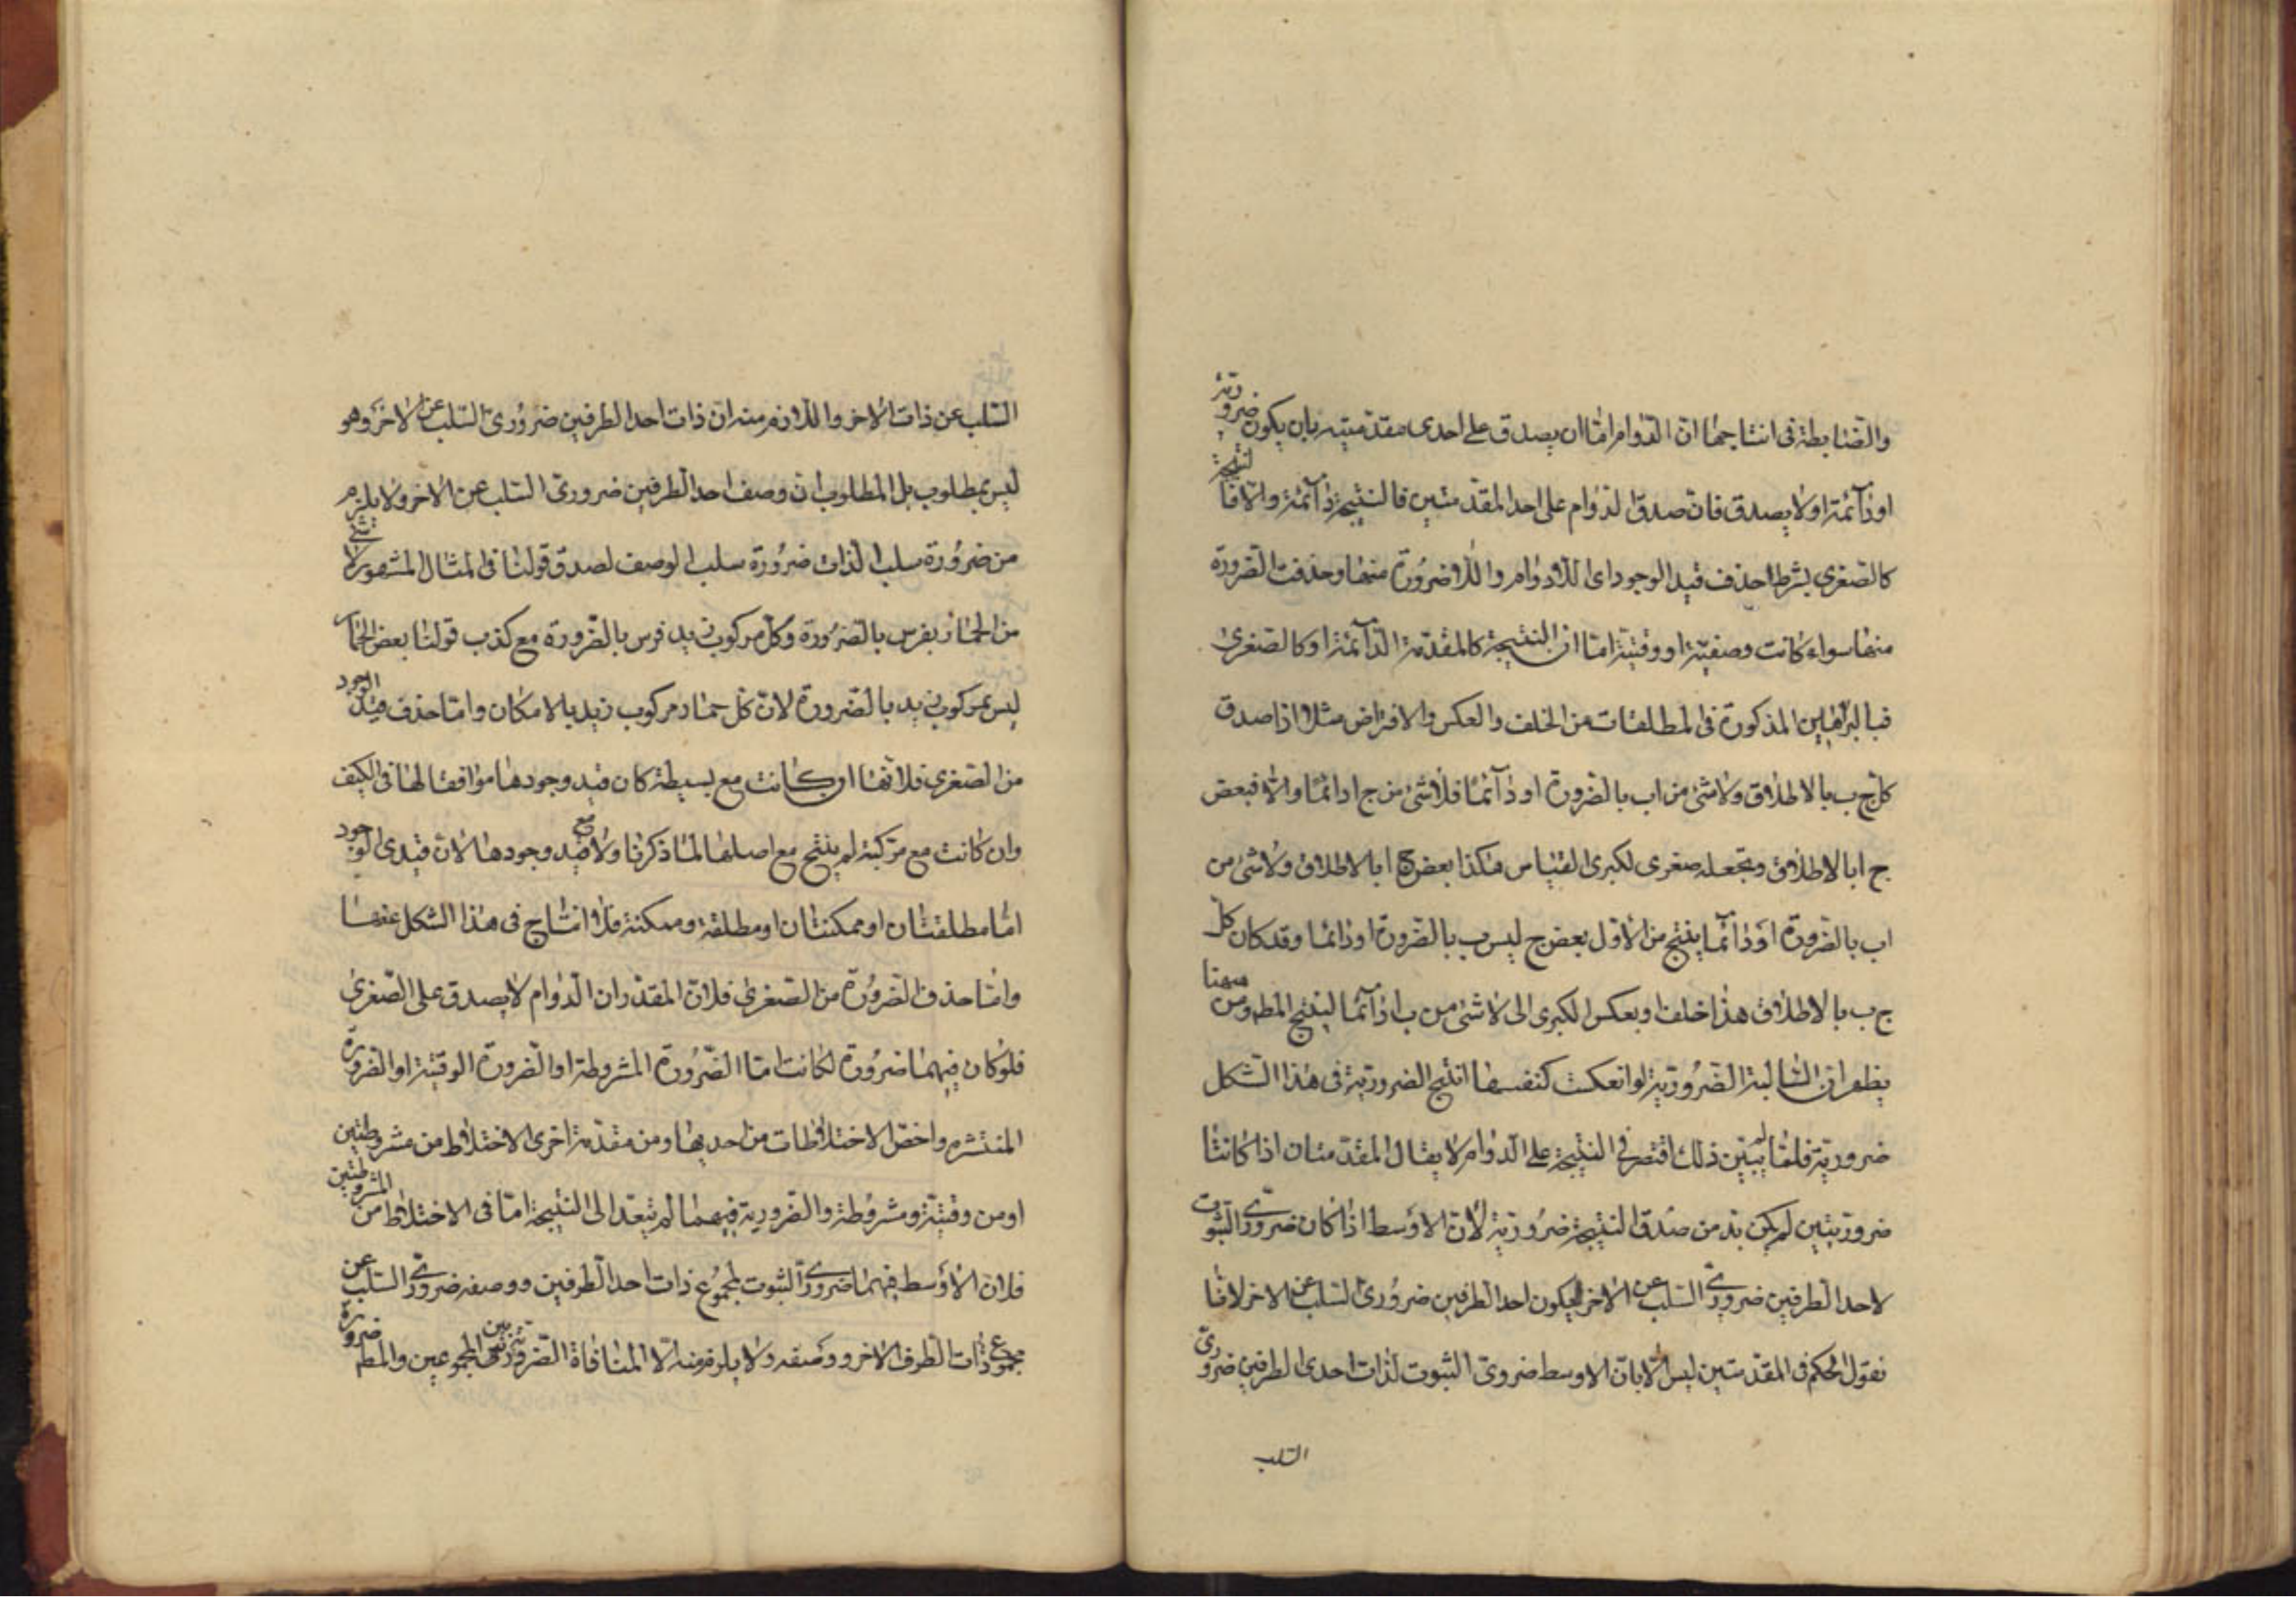 والضابطة في انتاجها ان الدوام اما ان يصدق على احدى مقدمتيه بان يكون ضرورية
او دائمة او لا يصدق فان صدق الدوام على احد المقدمتين فالنتيجة دائمة والا فالنتيجة
كالصغرى بشرط حذف قيد الوجود اى اللادوام واللاضرورة منها وحذفت الضرورة
منها سواء كانت وصفية او وقتية اما ان النتيجة كالمقدمة الدائمة او كالصغرى
فبالبراهين المذكورة في المطلقات من الخلف والعكس والافتراض مثلا اذا صدق
كل ج ب بالاطلاق ولا شئ من ا ب بالضرورة او دائما فلا شئ من ج ا دائما والا فبعض
ج ا بالاطلاق ونجعله صغرى لكبرى القياس هكذا بعض ج ا بالاطلاق ولا شئ من
ا ب بالضرورة او دائما ينتج من الاول بعض ج ليس ب بالضرورة او دائما وقد كان كل
ج ب بالاطلاق هذا خلف او بعكس الكبرى الى لا شئ من ب ا دائما لينتج المط ومن ههنا
يظهر ان السالبة الضرورية لو انعكست كنفسها انتج الضرورية في هذا الشكل
ضرورية فلما لم يبين ذلك اقتصر في النتيجة على الدوام لا يقال المقدمتان اذا كانتا
ضروريتين لم يكن بد من صدق النتيجة ضرورية لان الاوسط اذا كان ضرورى الثبوت
لاحد الطرفين ضرورى السلب عن الاخر ليكون احد الطرفين ضرورى السلب عن الاخر لانا
نقول الحكم في المقدمتين ليس الا بان الاوسط ضرورى الثبوت لذات احدى الطرفين ضرورى
السلب
السلب عن ذات الاخر واللازم منه ان ذات احد الطرفين ضرورى السلب عن الاخر وهو
ليس بمطلوب بل المطلوب ان وصف احد الطرفين ضرورى السلب عن الاخر ولا يلزم
من ضرورة سلب الذات ضرورة سلب الوصف لصدق قولنا في المثال المشهور لا شئ
من الحمار بفرس بالضرورة وكل مركوب زيد فرس بالضرورة مع كذب قولنا بعض الحمار
ليس بمركوب زيد بالضرورة لان كل حمار مركوب زيد بالامكان واما حذف قيد الوجود
من الصغرى فلانها ان كانت مع بسيطة كان قيد وجودها موافقا لها في الكيف
وان كانت مع مركبة لم ينتج مع اصلها لما ذكرنا ولا مع قيد وجودها لان قيدى الوجود
اما مطلقتان او ممكنتان او مطلقة وممكنة فلا انتاج في هذا الشكل عنها
واما حذف الضرورة من الصغرى فلان المقدر ان الدوام لا يصدق على الصغرى
فلو كان فيهما ضرورة لكانت اما الضرورة المشروطة او الضرورة الوقتية او الضرورة
المنتشره واخص الاختلاطات من احديها ومن مقدمة اخرى الاختلاط من مشروطتين
او من وقتية ومشروطة والضرورية فيهما لم تتعد الى النتيجة اما في الاختلاط من المشروطتين
فلان الاوسط فيهما ضرورى الثبوت لمجموع ذات احد الطرفين ووصفه ضرورى السلب عن
مجموع ذات الطرف الاخر ووصفه ولا يلزم منه الا المنافاة الضرورية بين المجموعين والمط ضرورة